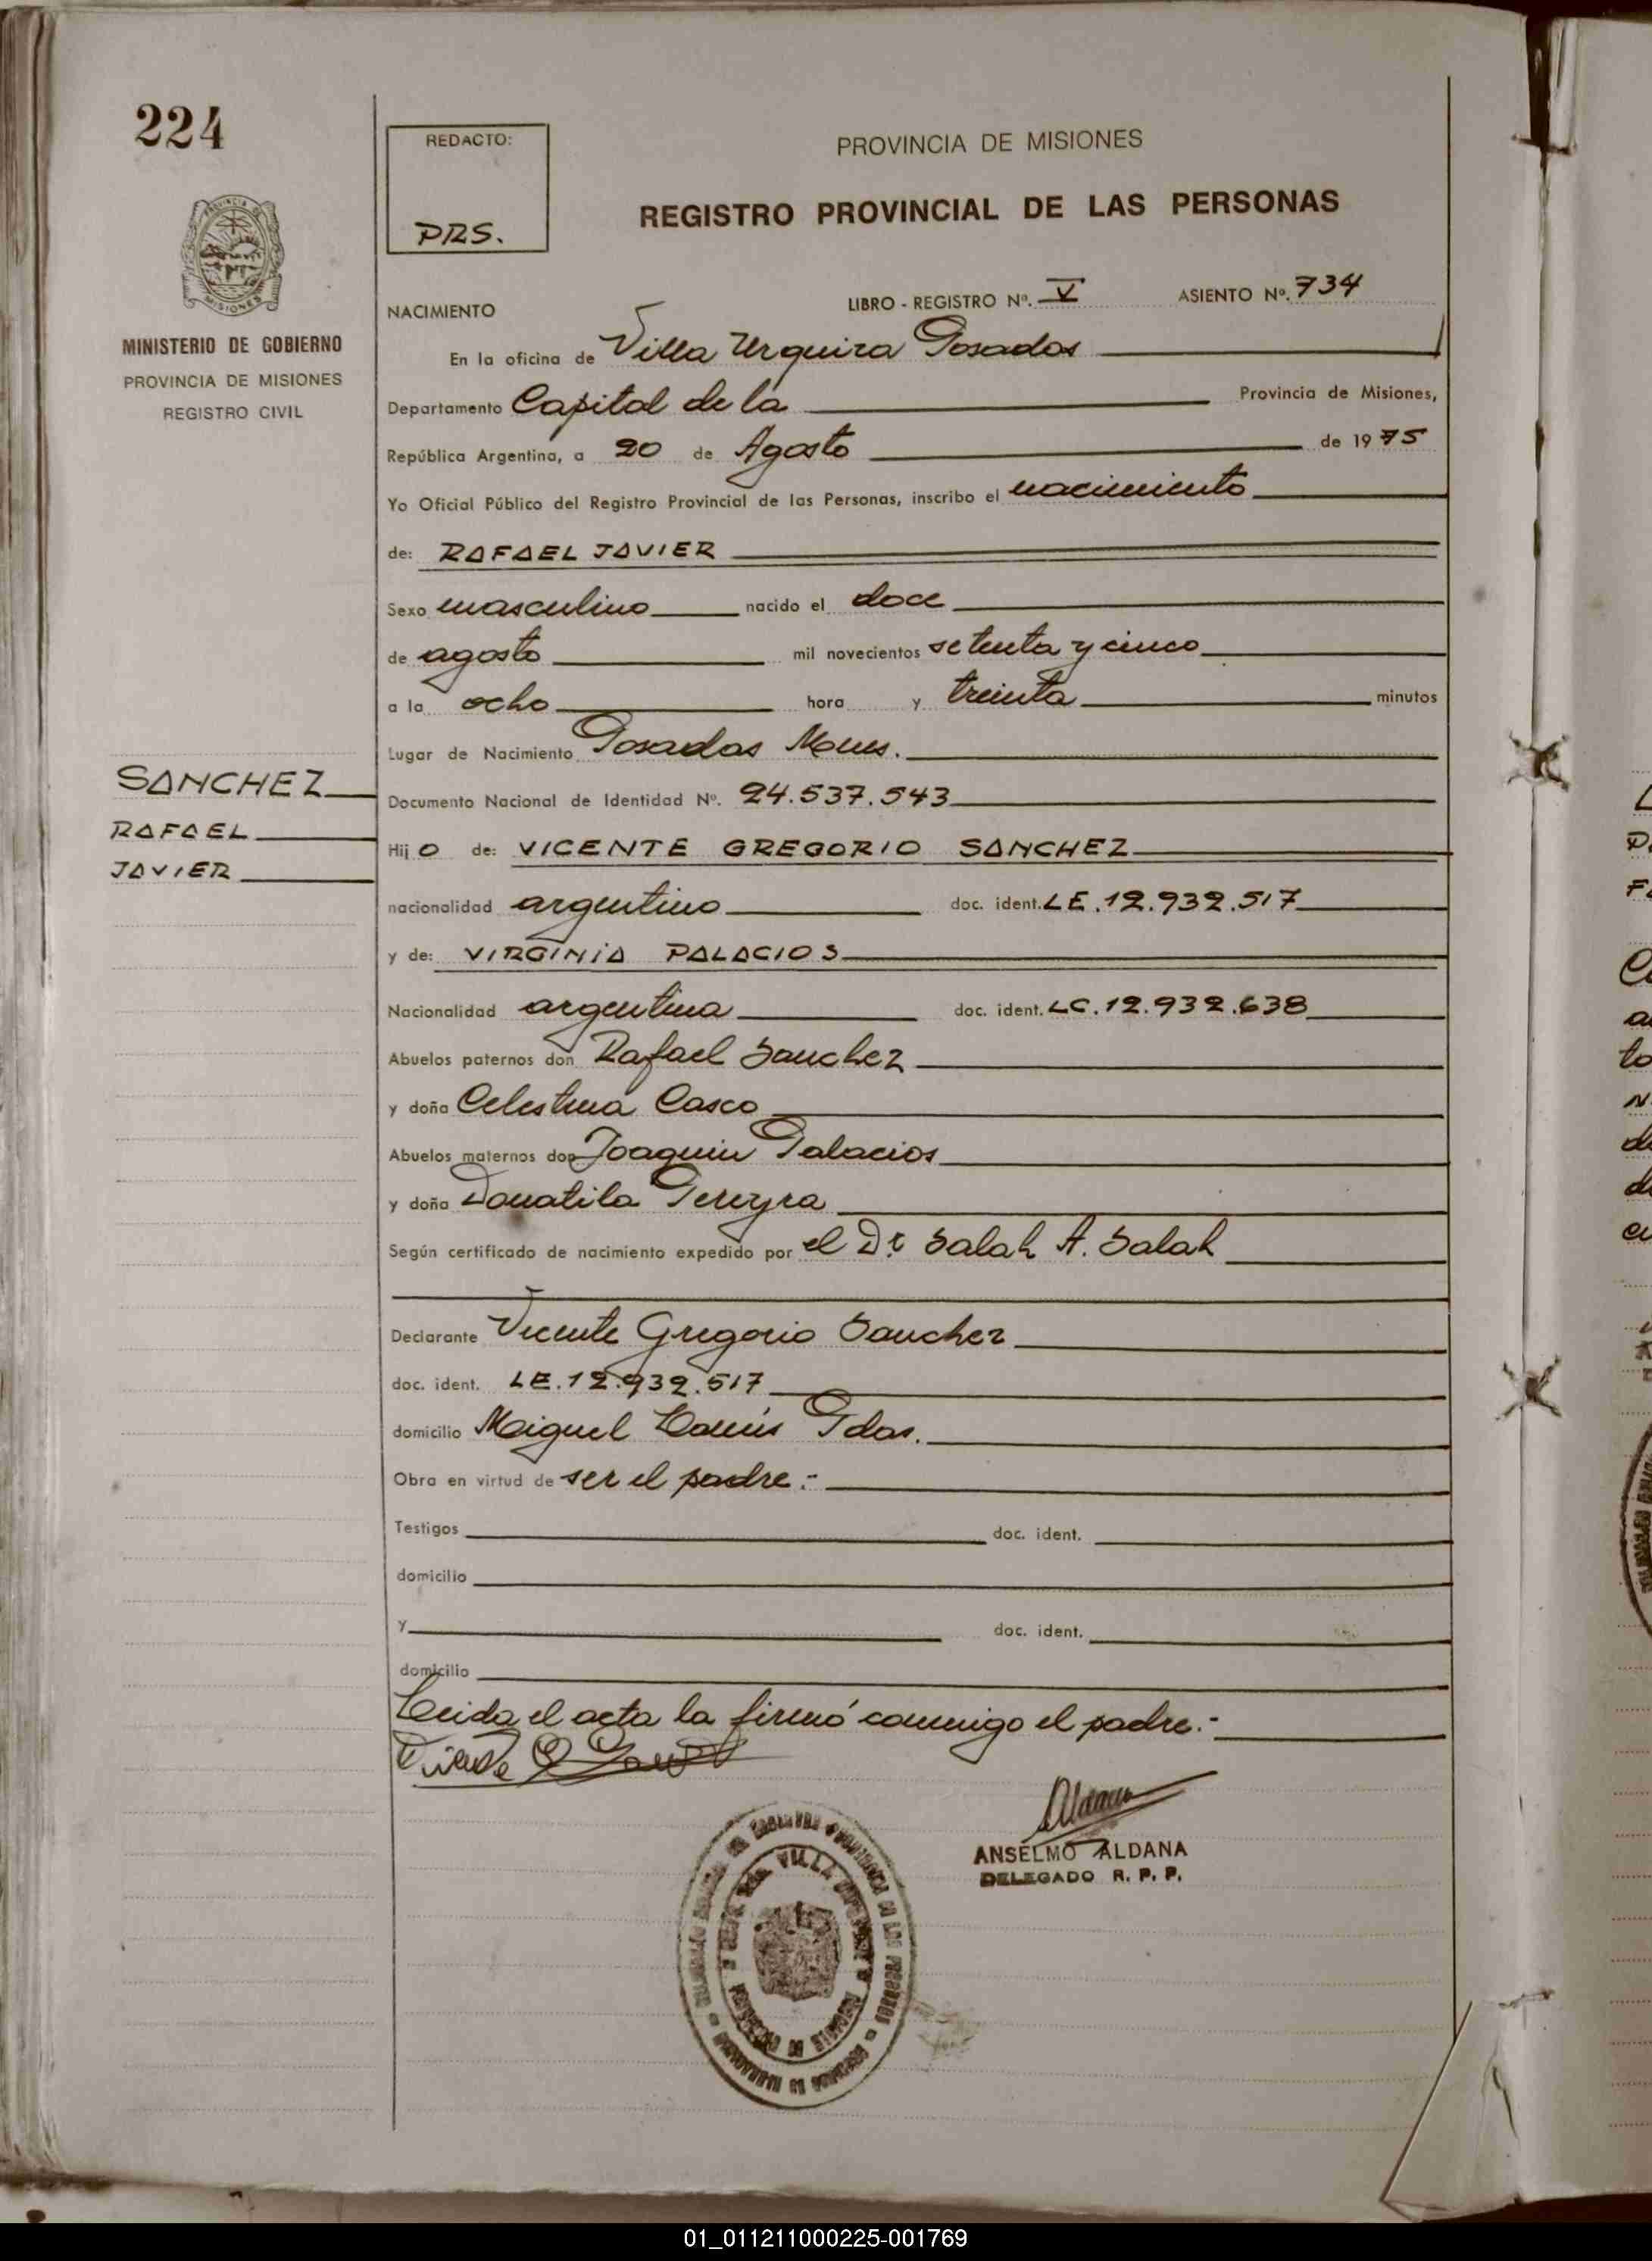 224
PROVINCIA DE
MISIONES
MINISTERIO DE GOBIERNO
PROVINCIA DE MISIONES
REGISTRO CIVIL
REDACTO:
PRS.
PROVINCIA DE MISIONES
REGISTRO PROVINCIAL DE LAS PERSONAS
NACIMIENTO LIBRO - REGISTRO Nº. V ASIENTO Nº. 734
En la oficina de Villa Urquiza Posadas
Departamento Capital de la Provincia de Misiones,
República Argentina, a 20 de Agosto de 1975
Yo Oficial Público del Registro Provincial de las Personas, inscribo el nacimiento
de: RAFAEL JAVIER
Sexo masculino nacido el doce
de agosto mil novecientos setenta y cinco
a la ocho hora y treinta minutos
Lugar de Nacimiento Posadas Mnes.
SANCHEZ
RAFAEL
JAVIER
Documento Nacional de Identidad Nº. 24.537.543
Hijo de: VICENTE GREGORIO SANCHEZ
nacionalidad argentino doc. ident. LE.12.932.517
y de: VIRGINIA PALACIOS
Nacionalidad argentina doc. ident. LC.12.932.638
Abuelos paternos don Rafael Sanchez
y doña Celestina Casco
Abuelos maternos don Joaquin Palacios
y doña Donatila Pereyra
Según certificado de nacimiento expedido por el Dr Salah A. Salah
Declarante Vicente Gregorio Sanchez
doc. ident. LE.12.932.517
domicilio Miguel Lanús Pdas.
Obra en virtud de ser el padre:-
Testigos doc. ident.
domicilio
y doc. ident.
domicilio
Leida el acta la firmó conmigo el padre.-
ANSELMO ALDANA
DELEGADO R. P. P.
VILLA
01_011211000225-001769